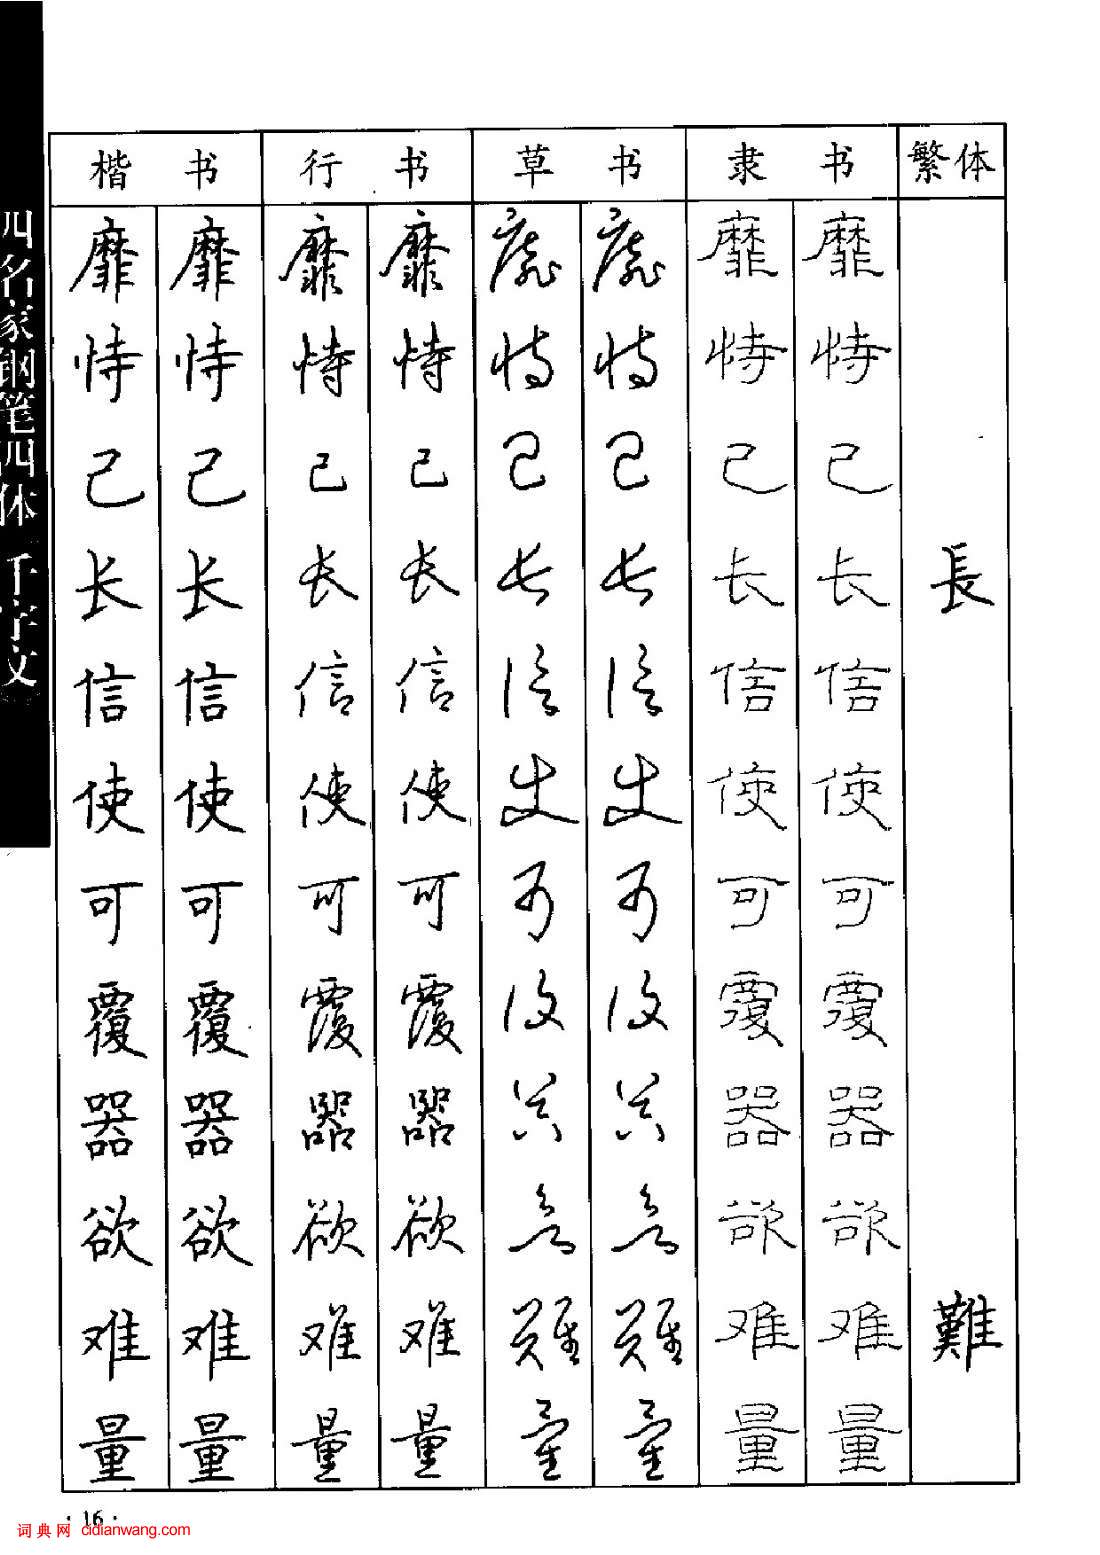 四名家钢笔四体千字文
楷书 行书 草书 隶书 繁体
靡 靡 靡 靡 靡 靡 靡 靡
恃 恃 恃 恃 恃 恃 恃 恃
己 己 己 己 己 己 己 己
长 长 长 长 长 长 长 长 長
信 信 信 信 信 信 信 信
使 使 使 使 使 使 使 使
可 可 可 可 可 可 可 可
覆 覆 覆 覆 覆 覆 覆 覆
器 器 器 器 器 器 器 器
欲 欲 欲 欲 欲 欲 欲 欲
难 难 难 难 難 難 难 难 難
量 量 量 量 量 量 量 量
·16·
词典网 cidianwang.com